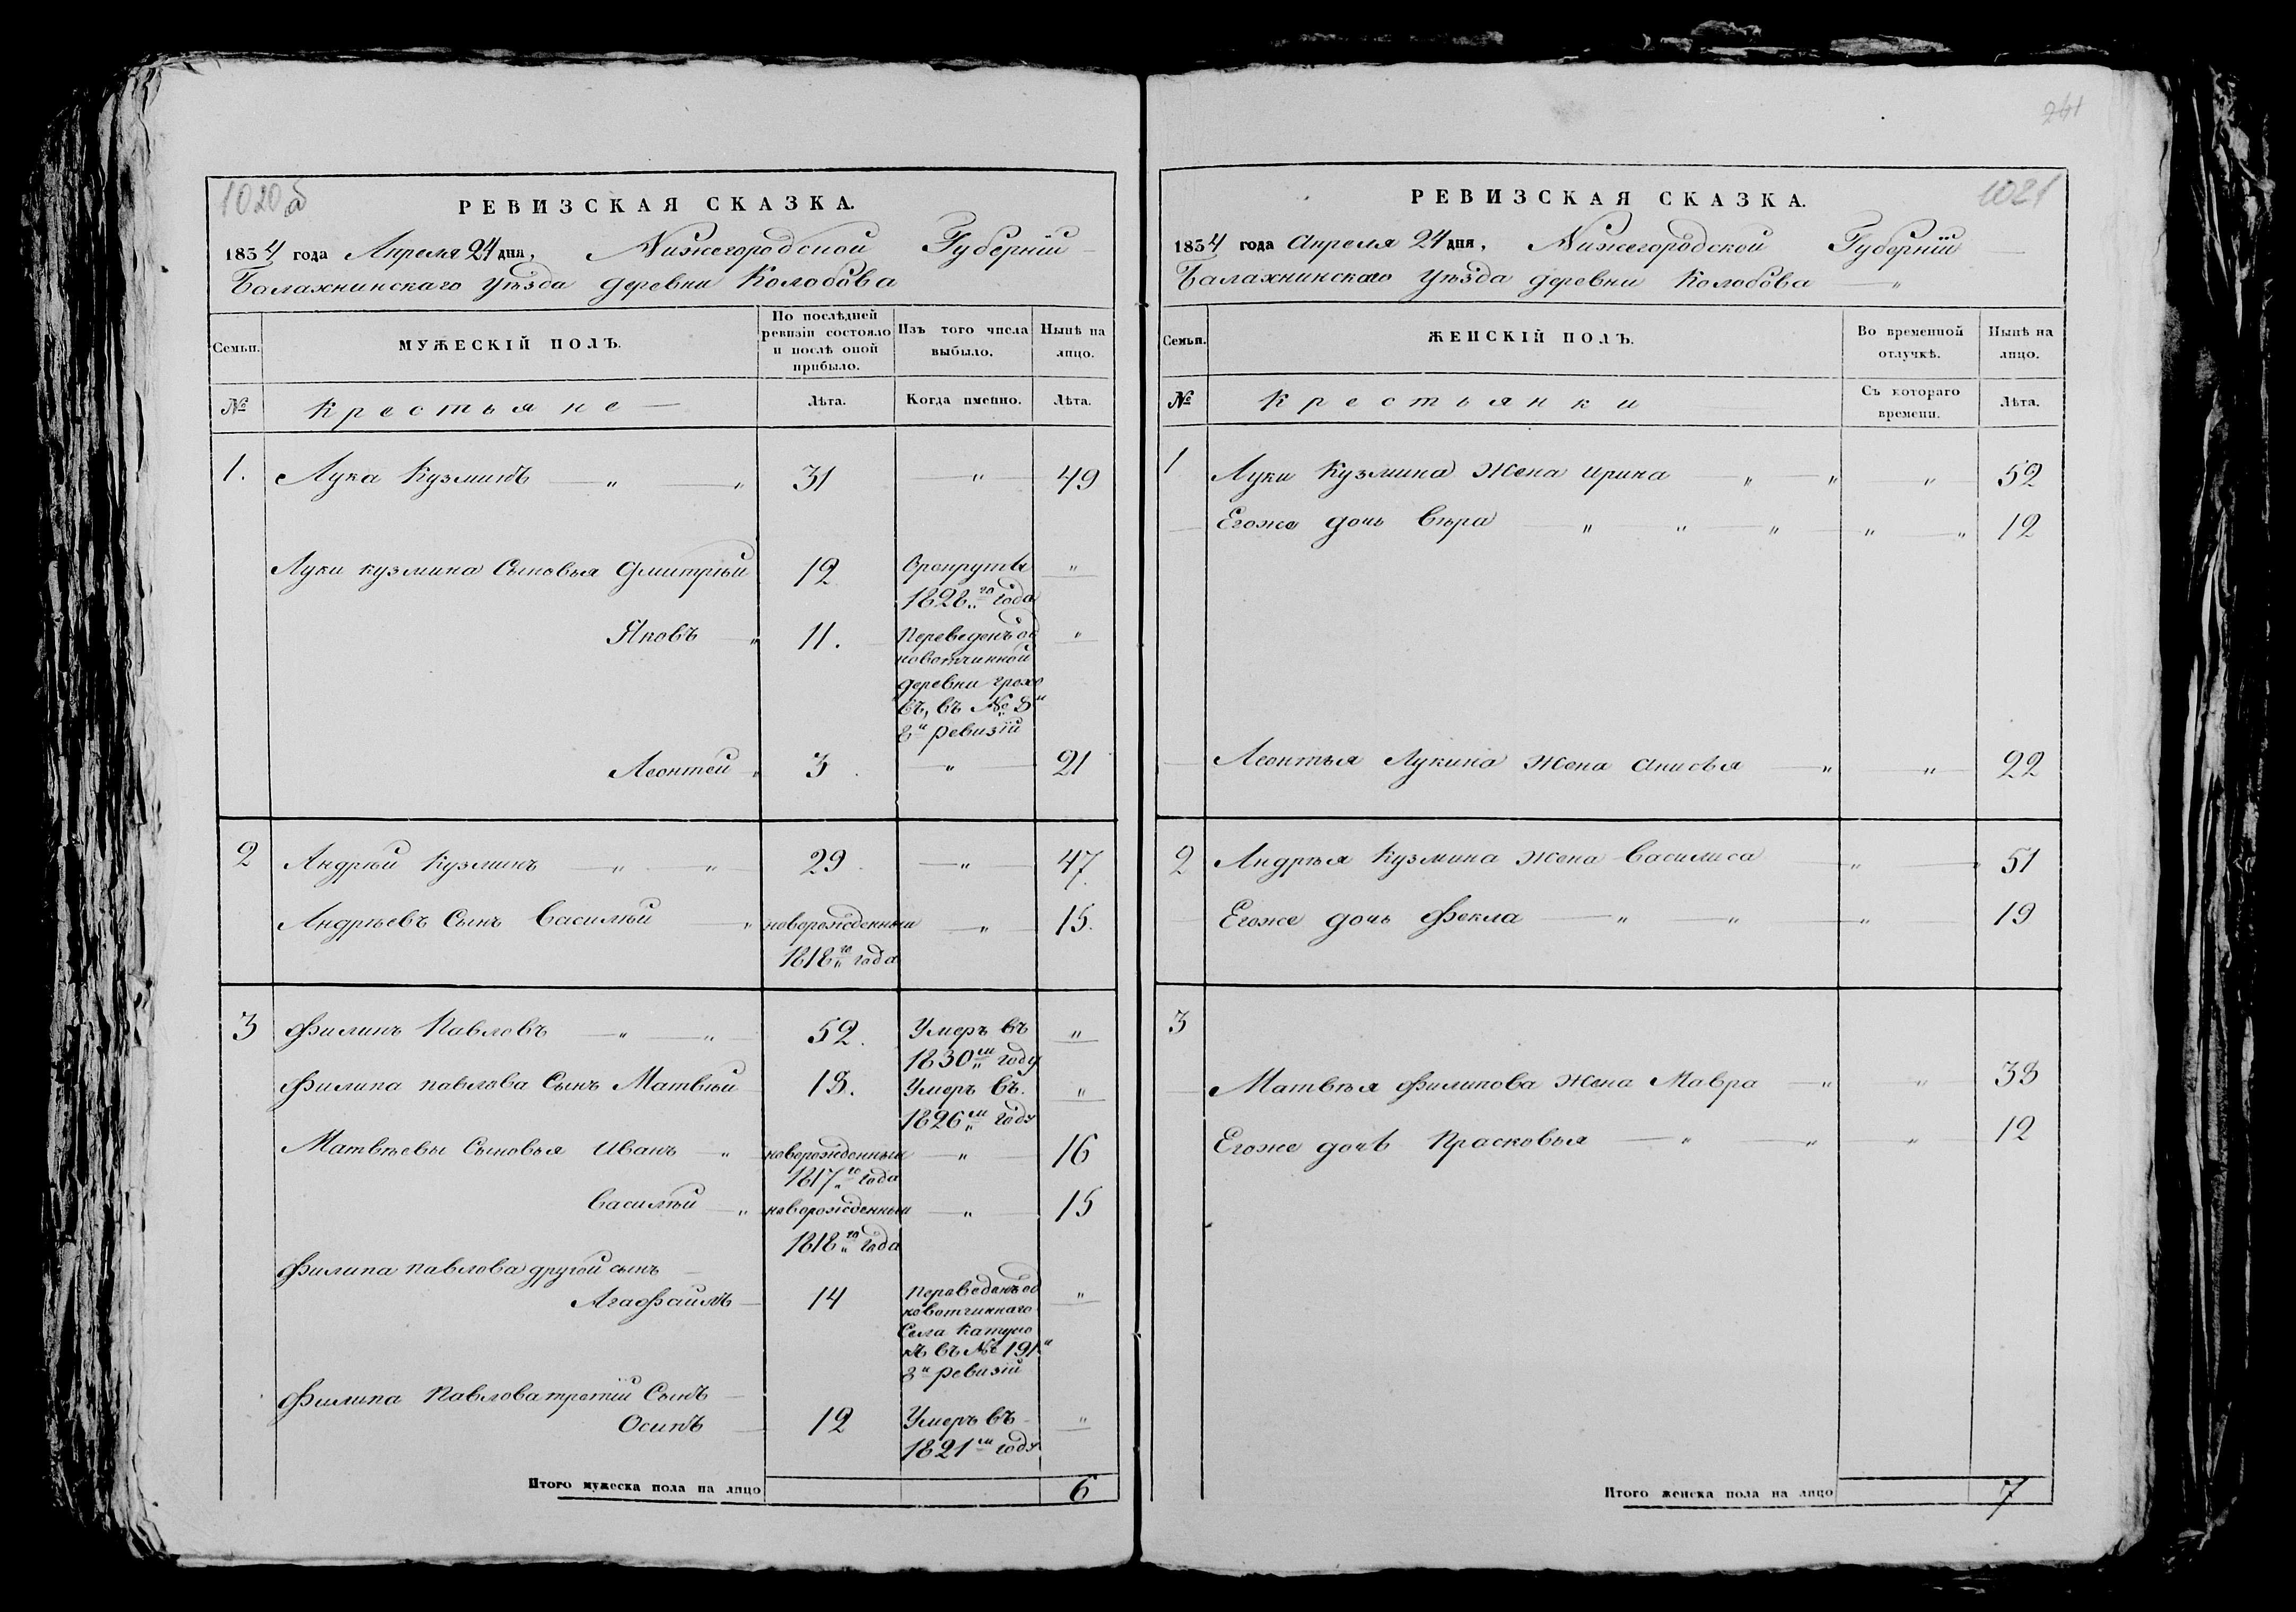 1020б
РЕВИЗСКАЯ СКАЗКА.
1834 года Апреля 24 дня, Нижегородской Губернїи
Балахнинскаго уѣзда деревни Колобова
Семьи.
МУЖЕСКІЙ ПОЛЪ.
По послѣдней ревизіи состояло и послѣ оной прибыло.
Изъ того числа выбыло.
Нынѣ на лицо.
№ Крестьяне Лѣта. Когда именно. Лѣта.
1. Лука Кузминъ 31 " 49
Луки кузмина Сыновья Дмитрѣй 12 Врекруты "
1828го года
Яковъ 11. Переведенъ од "
новотчинной
деревни грехо
въ, въ № 8
8й ревизїи
Леонтей 3 " 21
2 Андрѣй Кузминъ 29 " 47
Андрѣевъ Сынъ Василѣй новорожденный " 15.
1818го года
3 Филипъ Павловъ 52. Умеръ въ "
1830м году
Филипа павлова Сынъ Матвѣй 18. Умеръ въ "
1826м году
Матвѣевы Сыновья Иванъ новорожденный " 16
1817го года
Василѣй новорожденный " 15
1818го года
Филипа павлова другой сынъ
Агафаилъ 14 Переведенъ од "
новотчиннаго
Села Катуно
къ въ № 191
8й ревизїи
Филипа Павлова третїи Сынъ
Осипъ 12 Умеръ въ "
1821м году
Итого мужеска пола на лицо 6
241
1021
РЕВИЗСКАЯ СКАЗКА.
1834 года Апреля 24 дня, Нижегородской Губернїи
Балахнинскаго уѣзда деревни Колобова
Семьи.
ЖЕНСКІЙ ПОЛЪ.
Во временной отлучкѣ.
Нынѣ на лицо.
№ Крестьянки Съ котораго времени. Лѣта.
1 Луки Кузмина Жена Ирина " 52
Егоже дочь Вѣра " 12
Леонтья Лукина Жена Анисья " 22
2 Андрѣя Кузмина Жена Василиса " 51
Егоже дочь Фекла " 19
3
Матвѣя Филипова Жена Мавра " 38
Егоже дочь Прасковья " 12
Итого женска пола на лицо 7